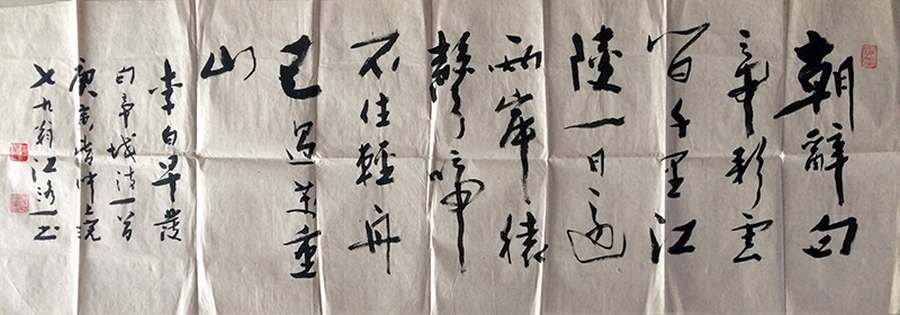 朝辭白
帝彩雲
間千里江
陵一日還
兩岸猿
聲啼
不住輕舟
已過萬重
山
李白早發
白帝城詩一首
庚寅上浣
七九翁江洛一书